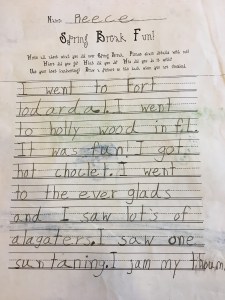 Name: Reece
Spring Break Fun!
Write all about what you did over Spring Break. Please answer details such as:
Where did you go? What did you do? Who did you do it with?
Use your best handwriting! Draw a picture on the back when you are finished.
I went to Fort
lodardal. I went
to holly wood in f.l.
It was fun! I got
hot choclet. I went
to the ever glads
and I saw lot's of
alagaters. I saw one
suntaning. I jam my thoum.